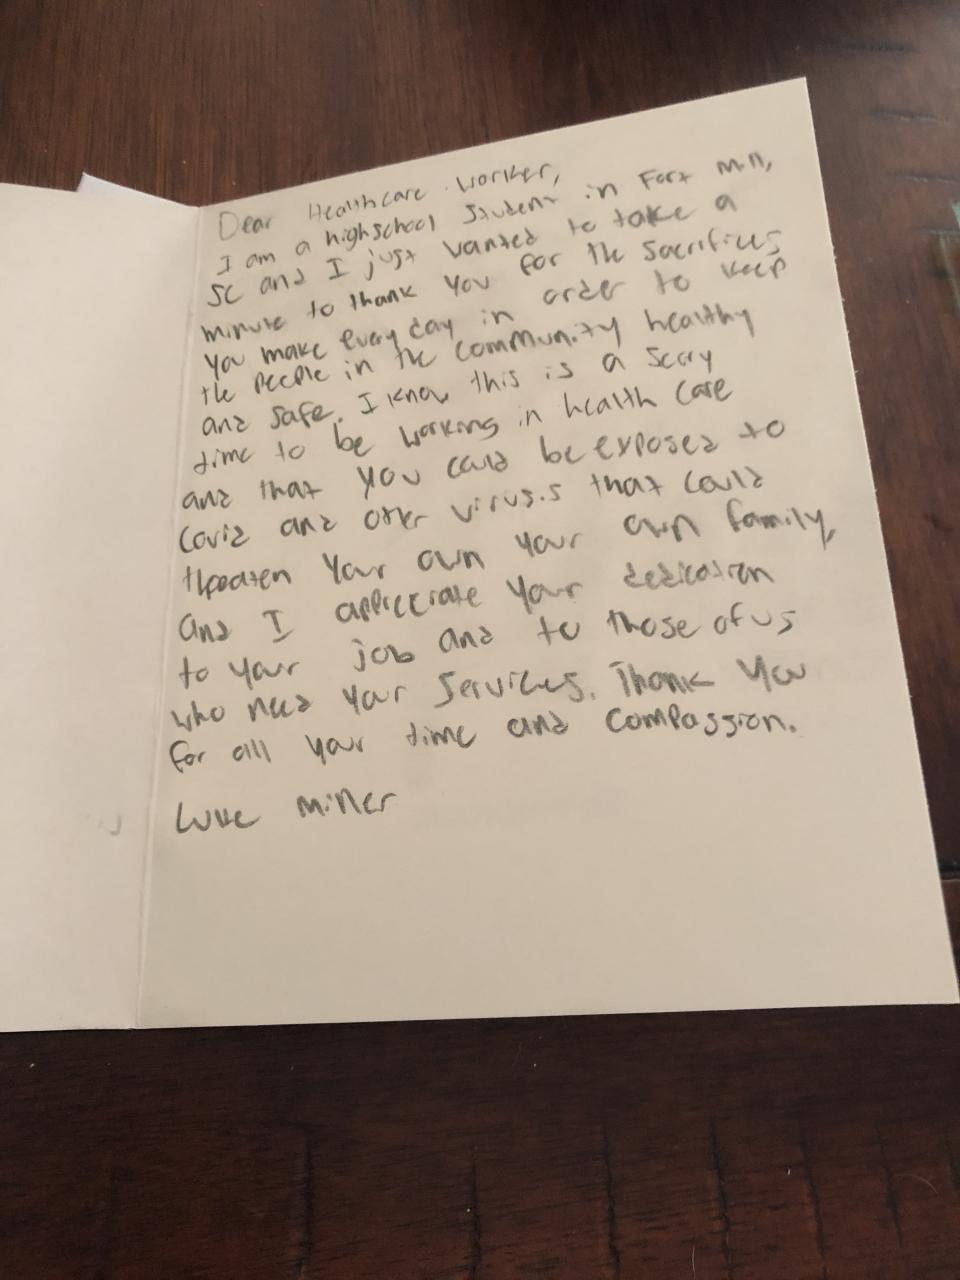 Dear Healthcare Worker,
I am a highschool student in Fort Mill,
SC and I just wanted to take a
minute to thank you for the sacrifices
you make every day in order to keep
the people in the community healthy
and safe. I know this is a scary
time to be working in health care
and that you could be exposed to
covid and other virus.s that could
threaten your own your own family,
and I appricciate your dedication
to your job and to those of us
who need your services. Thank you
for all your time and compassion.
Luke Miller